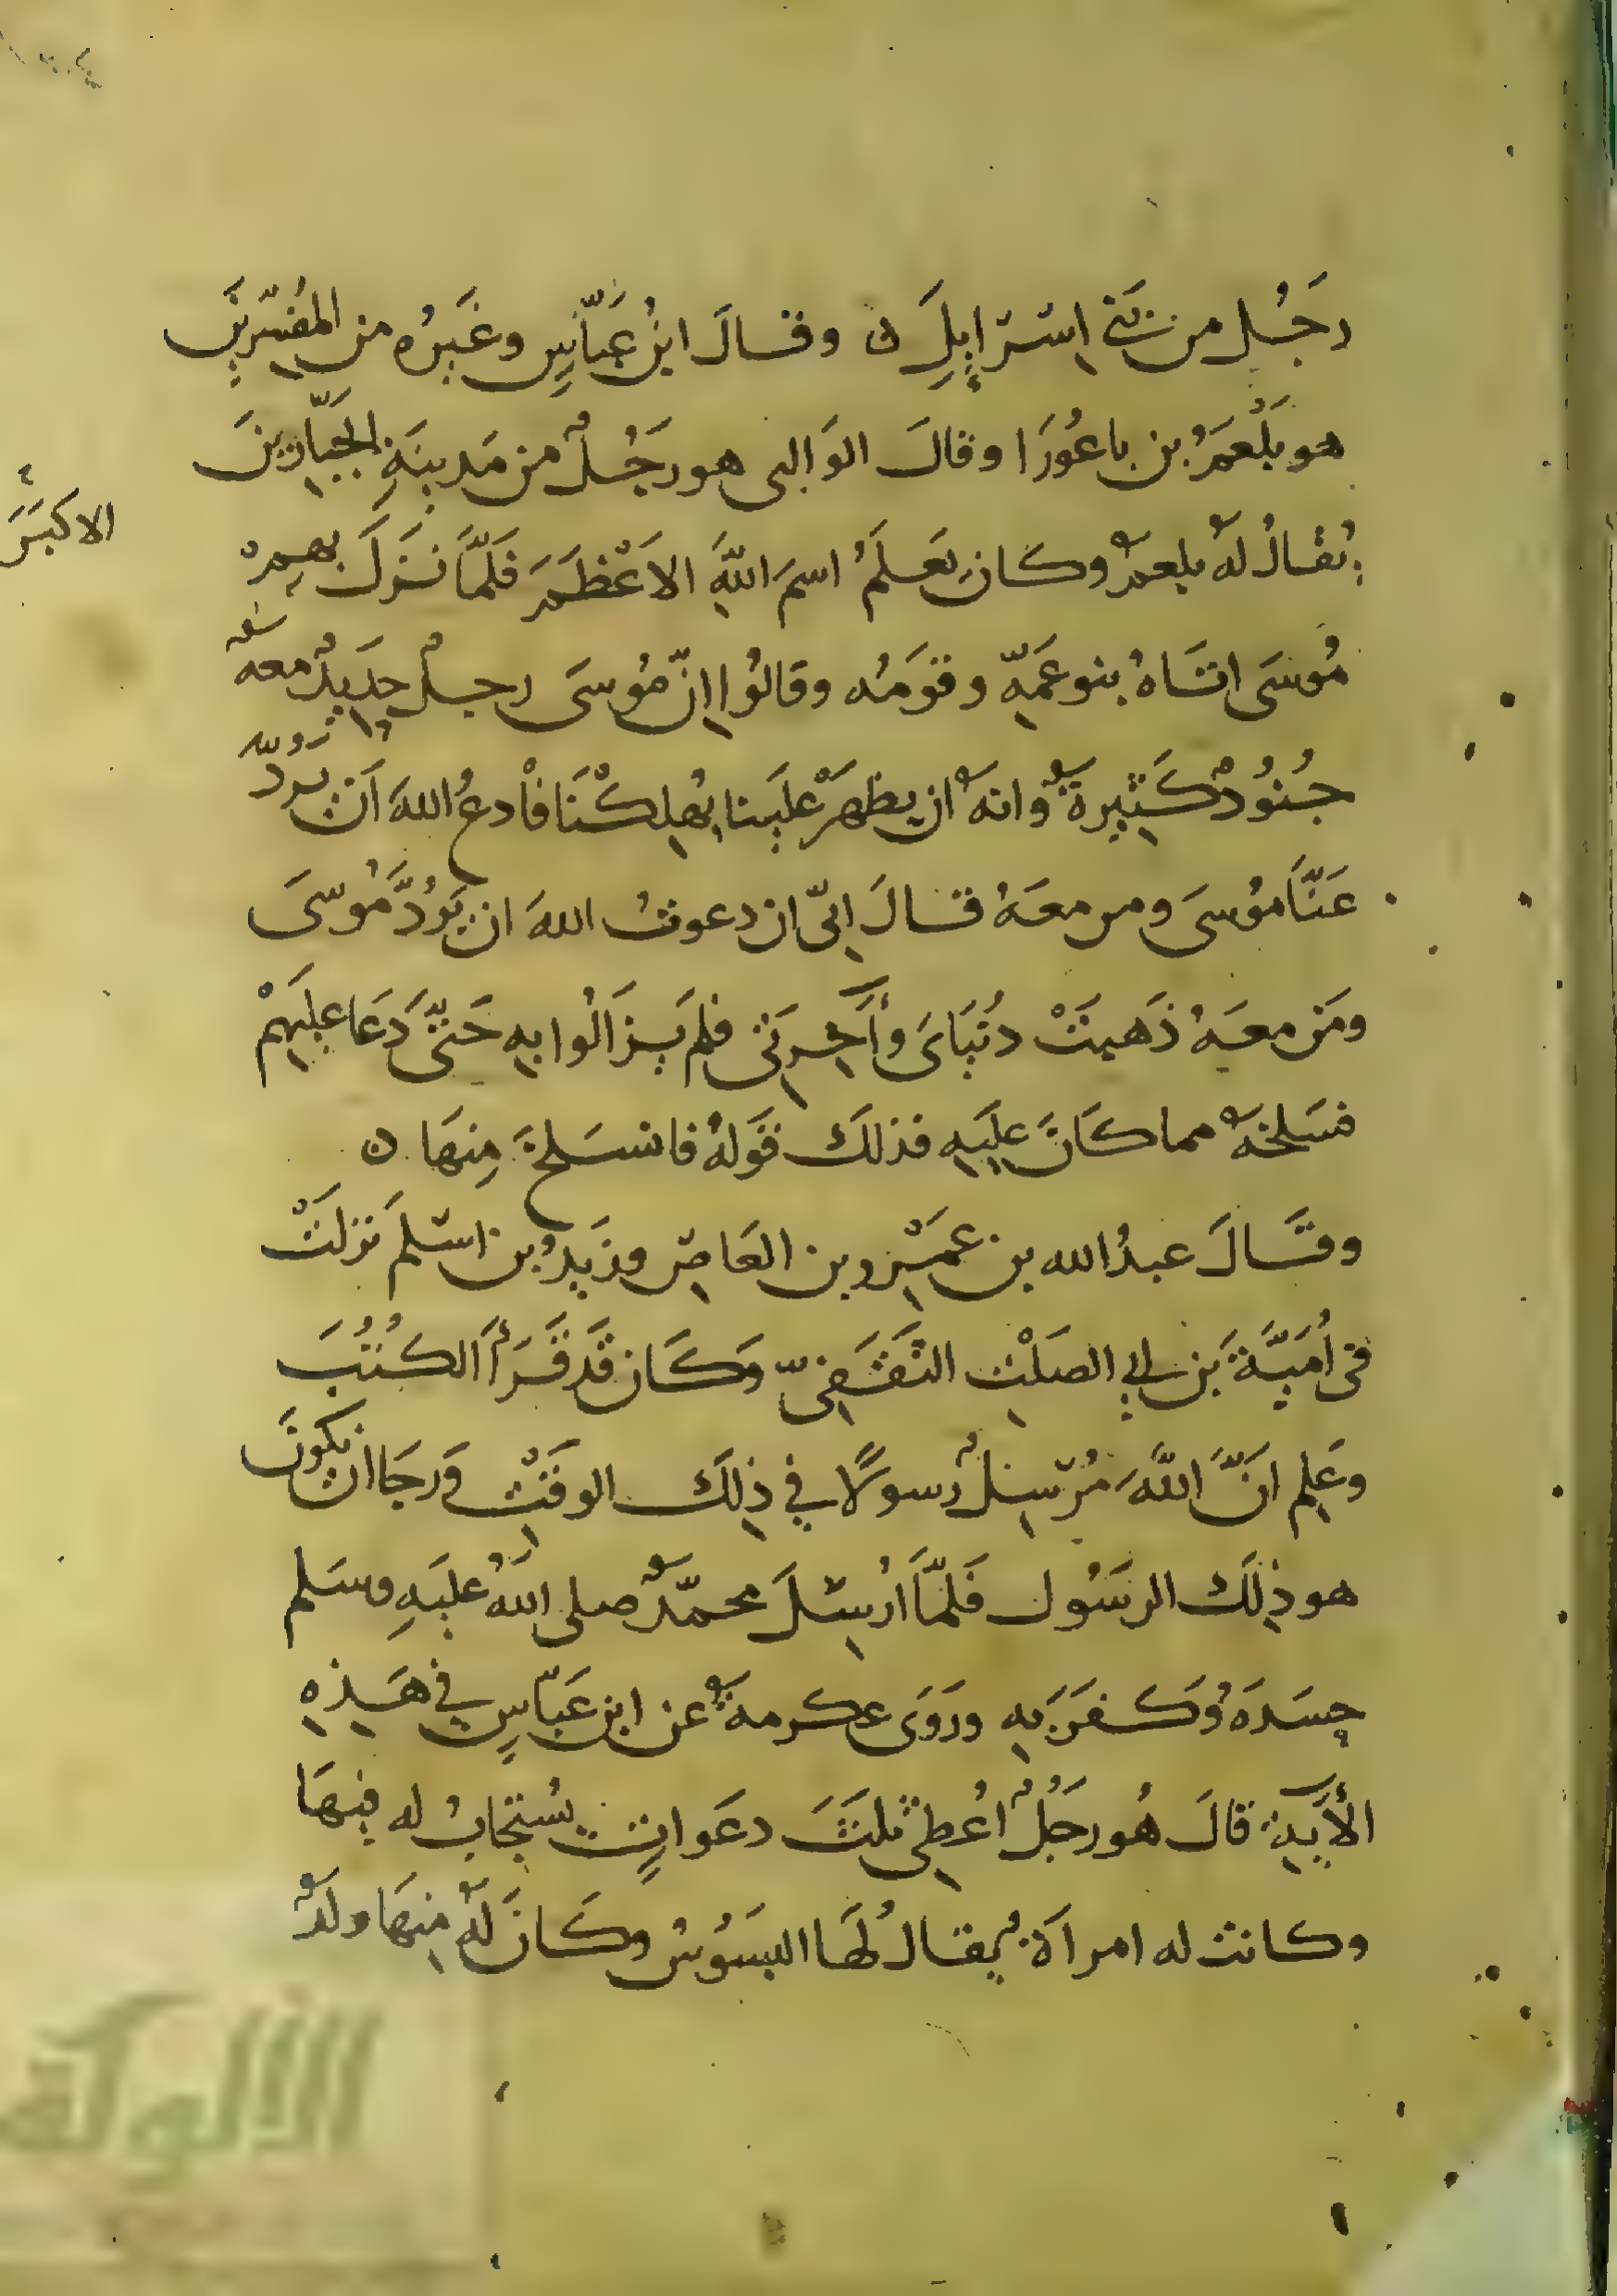 رَجُلٍ من بَنِي اِسْرَإيِلَ ن وقالَ ابنُ عَبّاسٍ وغَيرُه من المُفسّرينَ
هو بَلْعمَرُ بن باعُورَا وقالَ الوَالبى هو رَجُلٌ من مَدينَةِ الجبّارينَ
يُقالُ لهُ بلعمٌ وكانَ يَعلَمُ اسمَ اللهِ الاَعْظَمَ فَلَمَّا نَزَلَ بهِمْ
الاكبَرَ
مُوسَى اتَاهُ بنو عَمِّهِ وقومُه وقالُوا اِنّ مُوسَى رجلٌ حِدَيدٌ معهُ
جُنُودٌ كَثِيرةٌ وانهُ ان يظهَرْ عليَنا يُهلِكْنَا فْادعُ اللهَ اَن يردّ
عَنَّا مُوسىَ ومن معَهُ قالَ اِنّى ان دعوتُ اللهَ ان يَرُدَّ مُوسَى
ومَن معَهُ ذَهبَتْ دُنيَاىَ وآَخِرتَى فلم يَزَالُوا بهِ حَتّى دَعَا علَيهِمْ
فسَلخهُ مما كَانَ عليَهِ فذلكَ قَولهُ فانسَلخَ مِنهَا ن
وقَالَ عبدُ الله بن عَمْرِو بن العَاصِ وزَيدُ بن اسْلمَ نزلَتْ
فى اُميَّةَ بَن ابي الصَلْتِ الثقَفِىّ وكَان قَد قَرَأَ الكُتُبَ
وعَلِم انَّ اللَّهَ مُرْسِلٌ رسولًا في ذِلكَ الوقَتِ ورَجَا ان يكونَ
هو ذِلكَ الرسَوُلَ فَلمَّا اُرْسِلَ محمّدٌ صلى اللهُ عليَهِ وسَلم
حِسَدَهُ وَكَفَرَ بهِ ورَوَى عكرمةُ عن ابن عَبّاسٍ في هَذِهِ
الأَيةِ قالَ هُو رَجُلٌ اُعْطِىَ ثلثَ دعَواتٍ يُستجَابُ له فيهَا
وكانت له امراَة يُقالُ لهَا البسَوُسُ وكَانَ لَهُ مِنهَا ولدٌ
الألوكة